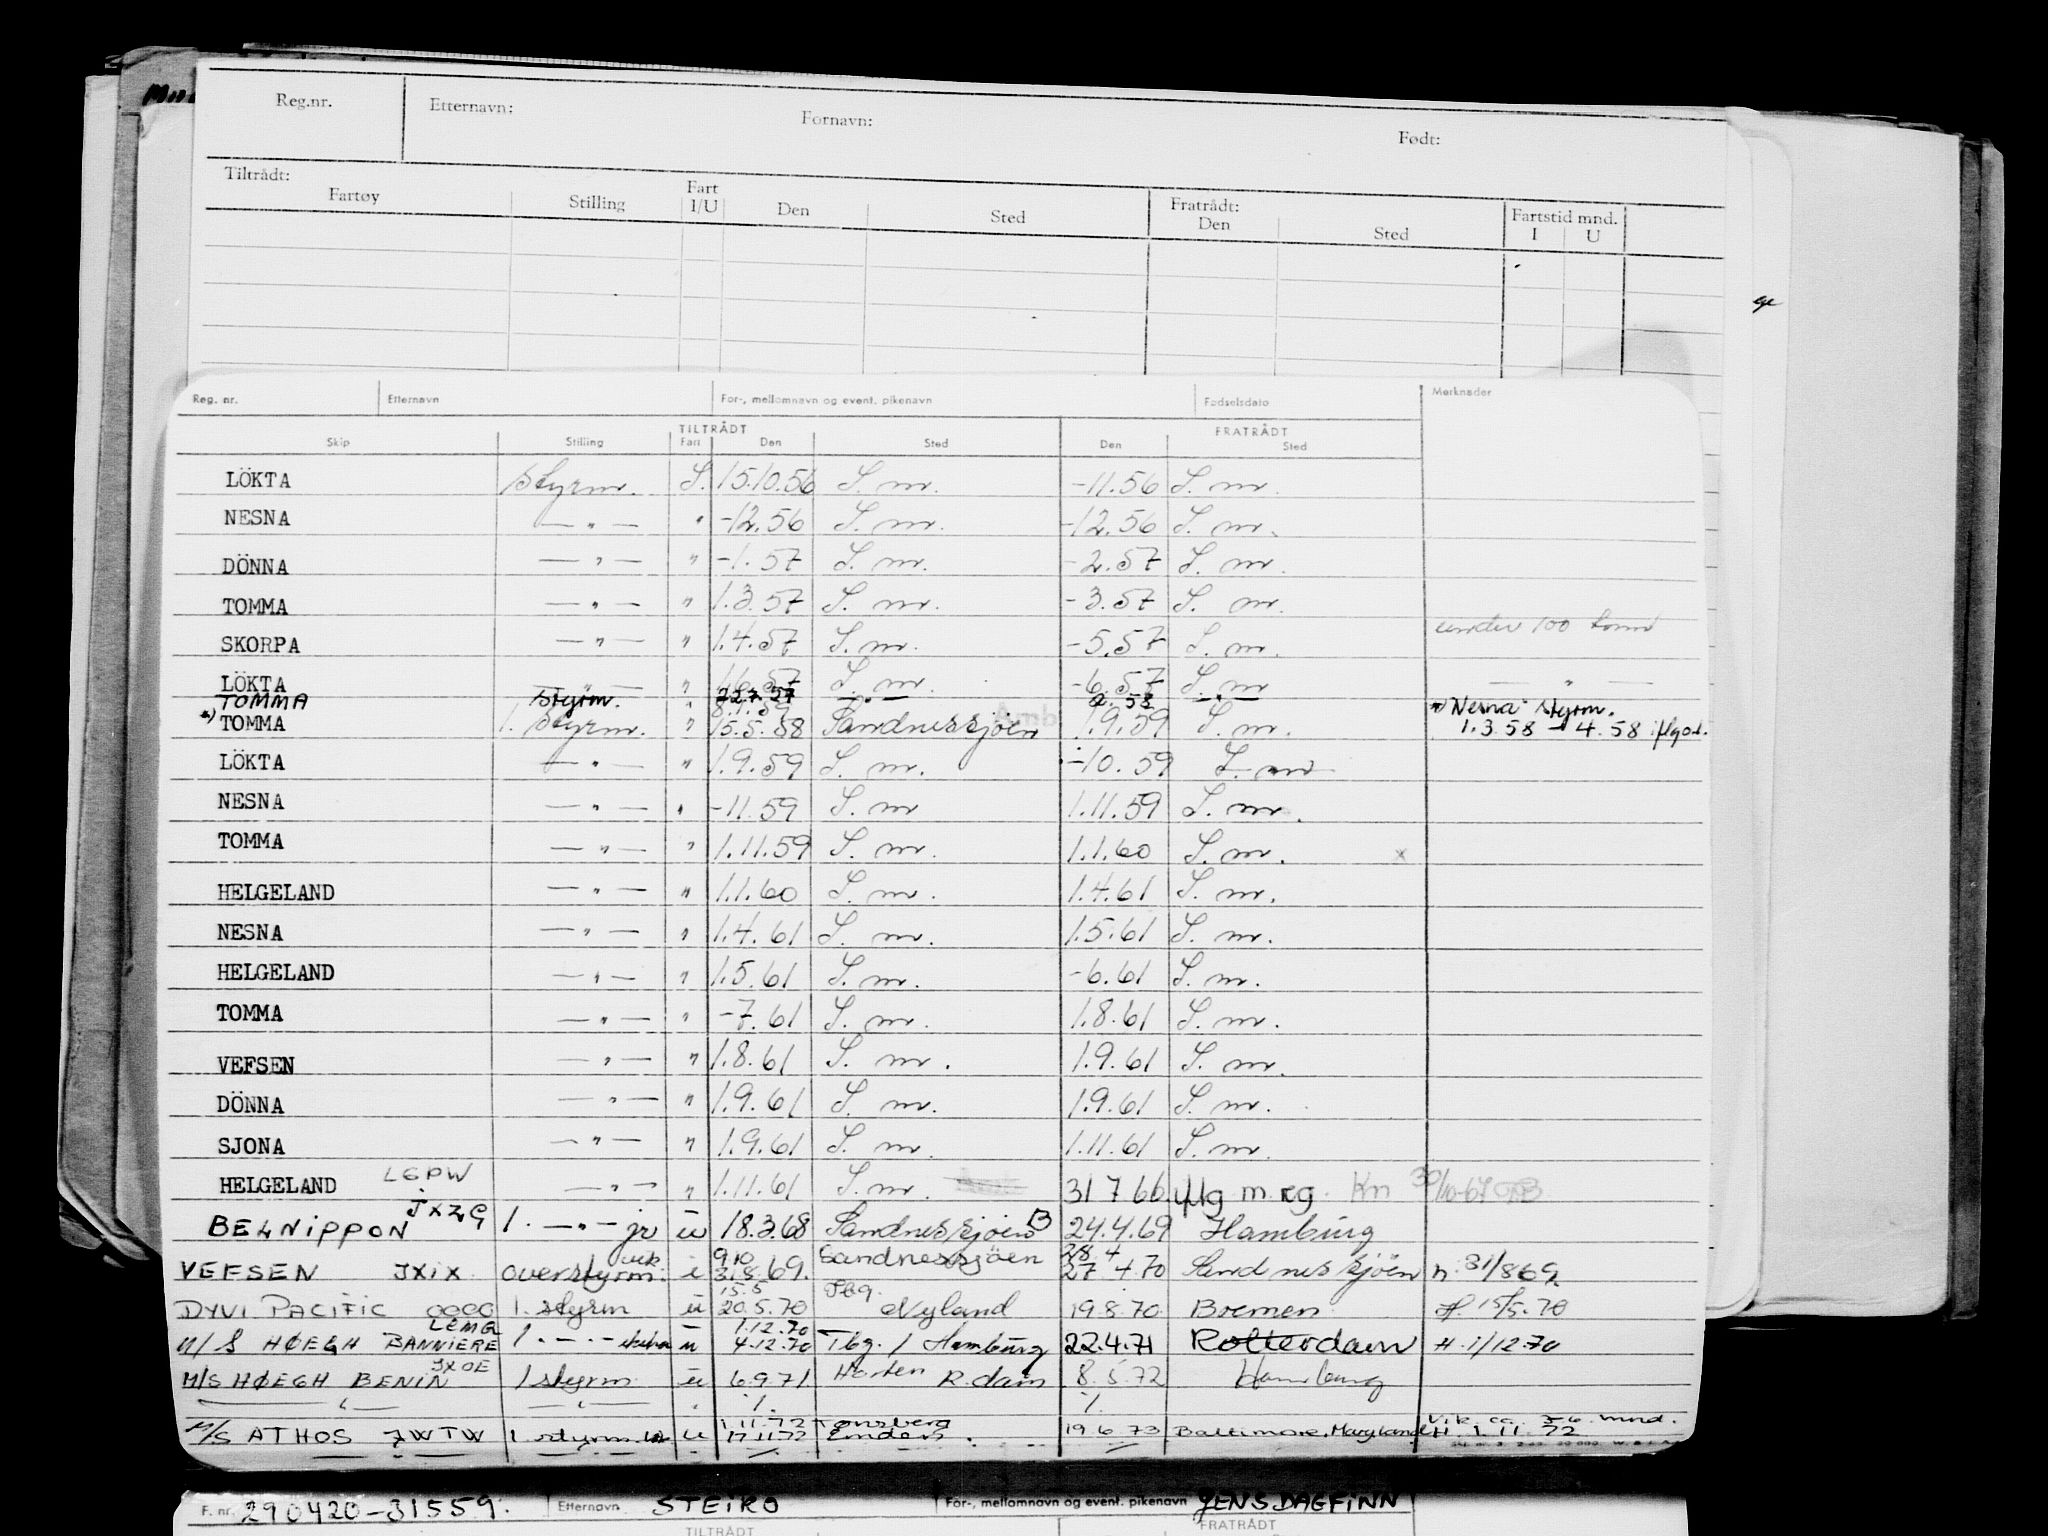 Reg.nr. Etternavn: Fornavn: Født:
Tiltrådt: Fratrådt:
Fartøy Stilling Fart I/U Den Sted Den Sted Fartstid mnd. I U
Reg. nr. Etternavn For-, mellomnavn og event. pikenavn Fødselsdato Merknader
TILTRÅDT FRATRÅDT
Skip Stilling Fart Den Sted Den Sted
LÖKTA Styrm. S. 15.10.56 S. m. -11.56 S. m.
NESNA — " — " -12.56 S. m. -12.56 S. m.
DÖNNA — " — " -1.57 S. m. -2.57 S. m.
TOMMA — " — " 1.3.57 S. m. -3.57 S. m.
SKORPA — " — " 1.4.57 S. m. -5.57 S. m. under 100 tonn
LÖKTA — " — " 1.6.57 S. m. -6.57 S. m. — " —
TOMMA Styrm. " 22.7.57 — " — 2.58 — " — *) "Nesna" styrm.
*) TOMMA 1. Styrm. " 15.5.58 Sandnessjøen 1.9.59 S. m. 1.3.58 - 4.58 iflg od.
LÖKTA — " — " 1.9.59 S. m. -10.59 S. m
NESNA — " — " -11.59 S. m 1.11.59 S. m.
TOMMA — " — " 1.11.59 S. m. 1.1.60 S. m. x
HELGELAND — " — " 1.1.60 S. m. 1.4.61 S. m.
NESNA — " — " 1.4.61 S. m. 1.5.61 S. m.
HELGELAND — " — " 1.5.61 S. m. -6.61 S. m.
TOMMA — " — " -7.61 S. m. 1.8.61 S. m.
VEFSEN — " — " 1.8.61 S. m. 1.9.61 S. m.
DÖNNA — " — " 1.9.61 S. m. 1.9.61 S. m.
SJONA — " — " 1.9.61 S. m. 1.11.61 S. m.
HELGELAND LGPW — " — " 1.11.61 S. m. 31 7 66 iflg m. rg. Kn 30/10-67
BELNIPPON JXZG 1. — " — jr u 18.3.68 Sandnessjøen B 24.4.69 Hamburg
vik. 9.10 Sandnessjöen 28.4
VEFSEN JXIX overstyrm. i 31.8.69. 27.4.70 Sandnessjöen h. 31/8 69.
15.5 Tbg.
DYVI PACIFIC 1. styrm u 20.5.70 Nyland 19.8.70 Bremen H. 15/5.70
LEMG 1.12.70
M/S HØEGH BANNIERE 1. — " — u 4.12.70 Tbg. / Hamburg 22.4.71 Rotterdam H. 1/12.70
JXOE
M/S HØEGH BENIN 1 styrm u 6.9.71 Horten R.dam 8.5.72 Hamburg
— " — — " — " %. %.
1.11.72 Tønsberg Vik. ca 5-6 mnd.
M/S ATHOS JWTW 1 styrm. u 17.11.72 Emden. 19.6.73 Baltimore, Maryland H. 1.11.72
F. nr. 290420-31559. Etternavn STEIRO For-, mellomnavn og event. pikenavn JENS DAGFINN
TILTRÅDT FRATRÅDT